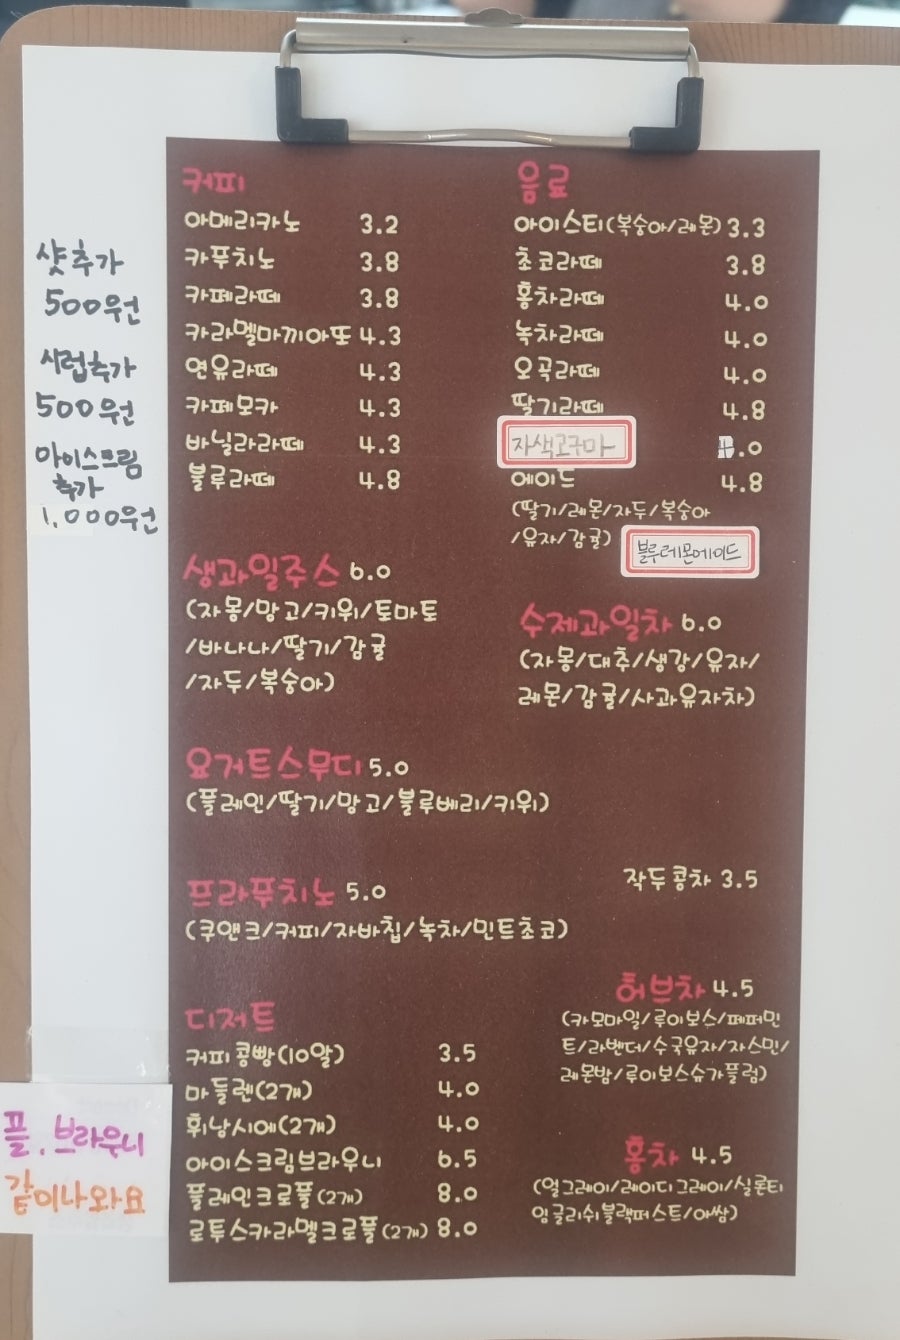 샷추가
500원
시럽추가
500원
아이스크림
추가
1,000원
커피
아메리카노 3.2
카푸치노 3.8
카페라떼 3.8
카라멜마끼아또 4.3
연유라떼 4.3
카페모카 4.3
바닐라라떼 4.3
블루라떼 4.8
음료
아이스티(복숭아/레몬) 3.3
초코라떼 3.8
홍차라떼 4.0
녹차라떼 4.0
오곡라떼 4.0
딸기라떼 4.8
자색고구마 4.0
에이드 4.8
(딸기/레몬/자두/복숭아
/유자/감귤)
블루레몬에이드
생과일주스 6.0
(자몽/망고/키위/토마토
/바나나/딸기/감귤
/자두/복숭아)
수제과일차 6.0
(자몽/대추/생강/유자/
레몬/감귤/사과유자차)
요거트스무디 5.0
(플레인/딸기/망고/블루베리/키위)
프라푸치노 5.0
(쿠앤크/커피/자바칩/녹차/민트초코)
작두콩차 3.5
디저트
커피콩빵(10알) 3.5
마들렌(2개) 4.0
휘낭시에(2개) 4.0
아이스크림브라우니 6.5
플레인크로플(2개) 8.0
로투스카라멜크로플(2개) 8.0
허브차 4.5
(카모마일/루이보스/페퍼민
트/라벤더/수국유자/자스민/
레몬밤/루이보스슈가플럼)
홍차 4.5
(얼그레이/레이디그레이/실론티
잉글리쉬블랙퍼스트/아쌈)
플. 브라우니
같이나와요